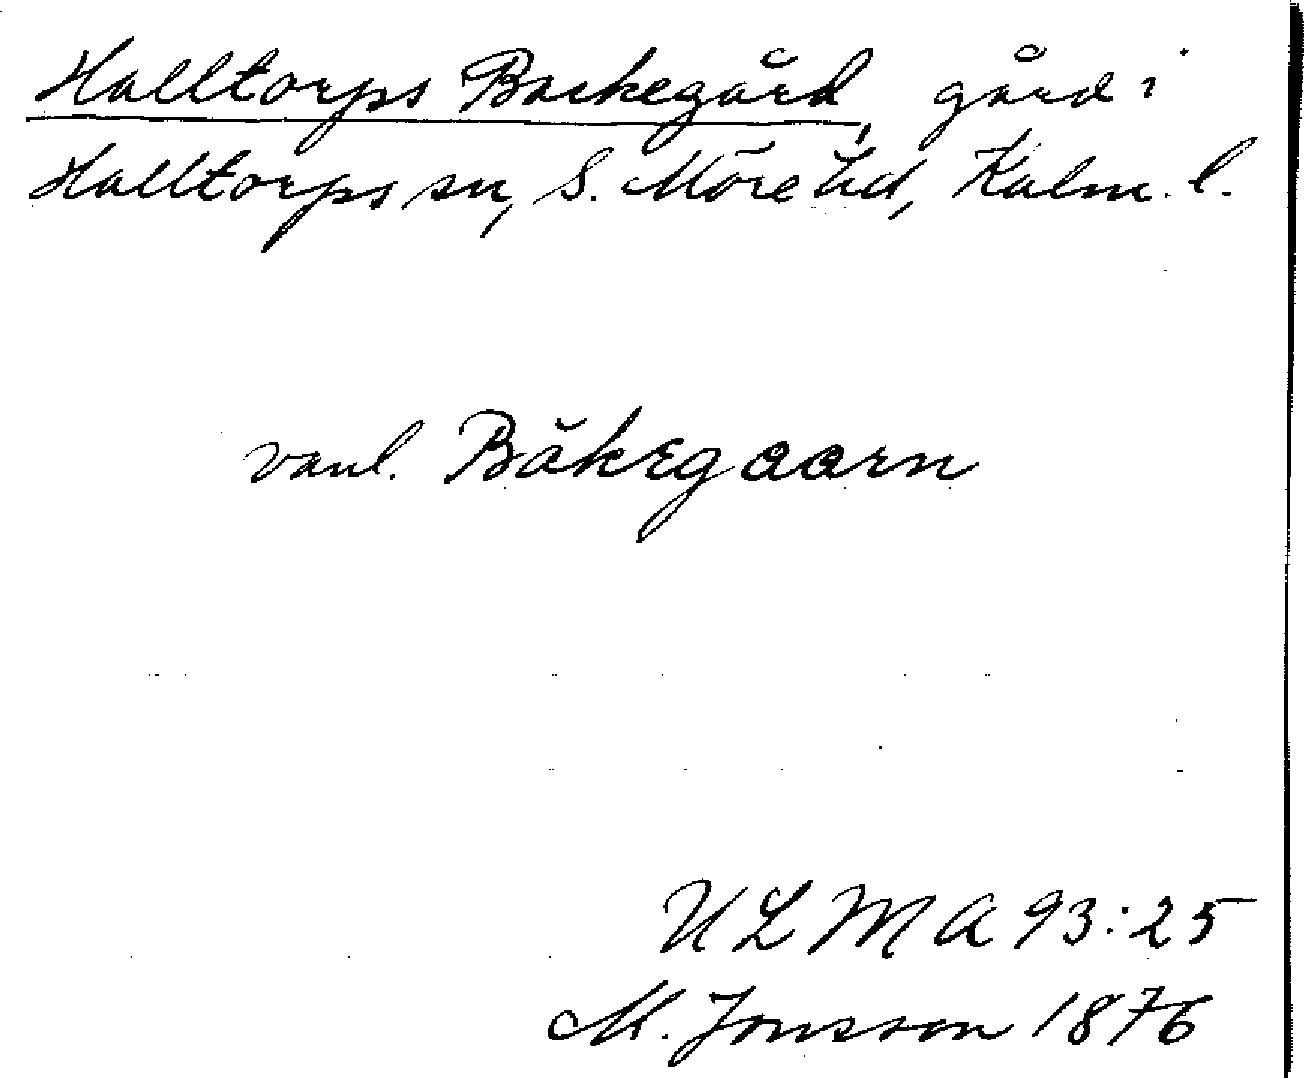 Halltorps Backegård, gård i
Halltorps sn, S. Möre hd, Kalm. l.
vanl. Băkegaarn
ULMA 93:25
M. Jonsson 1876